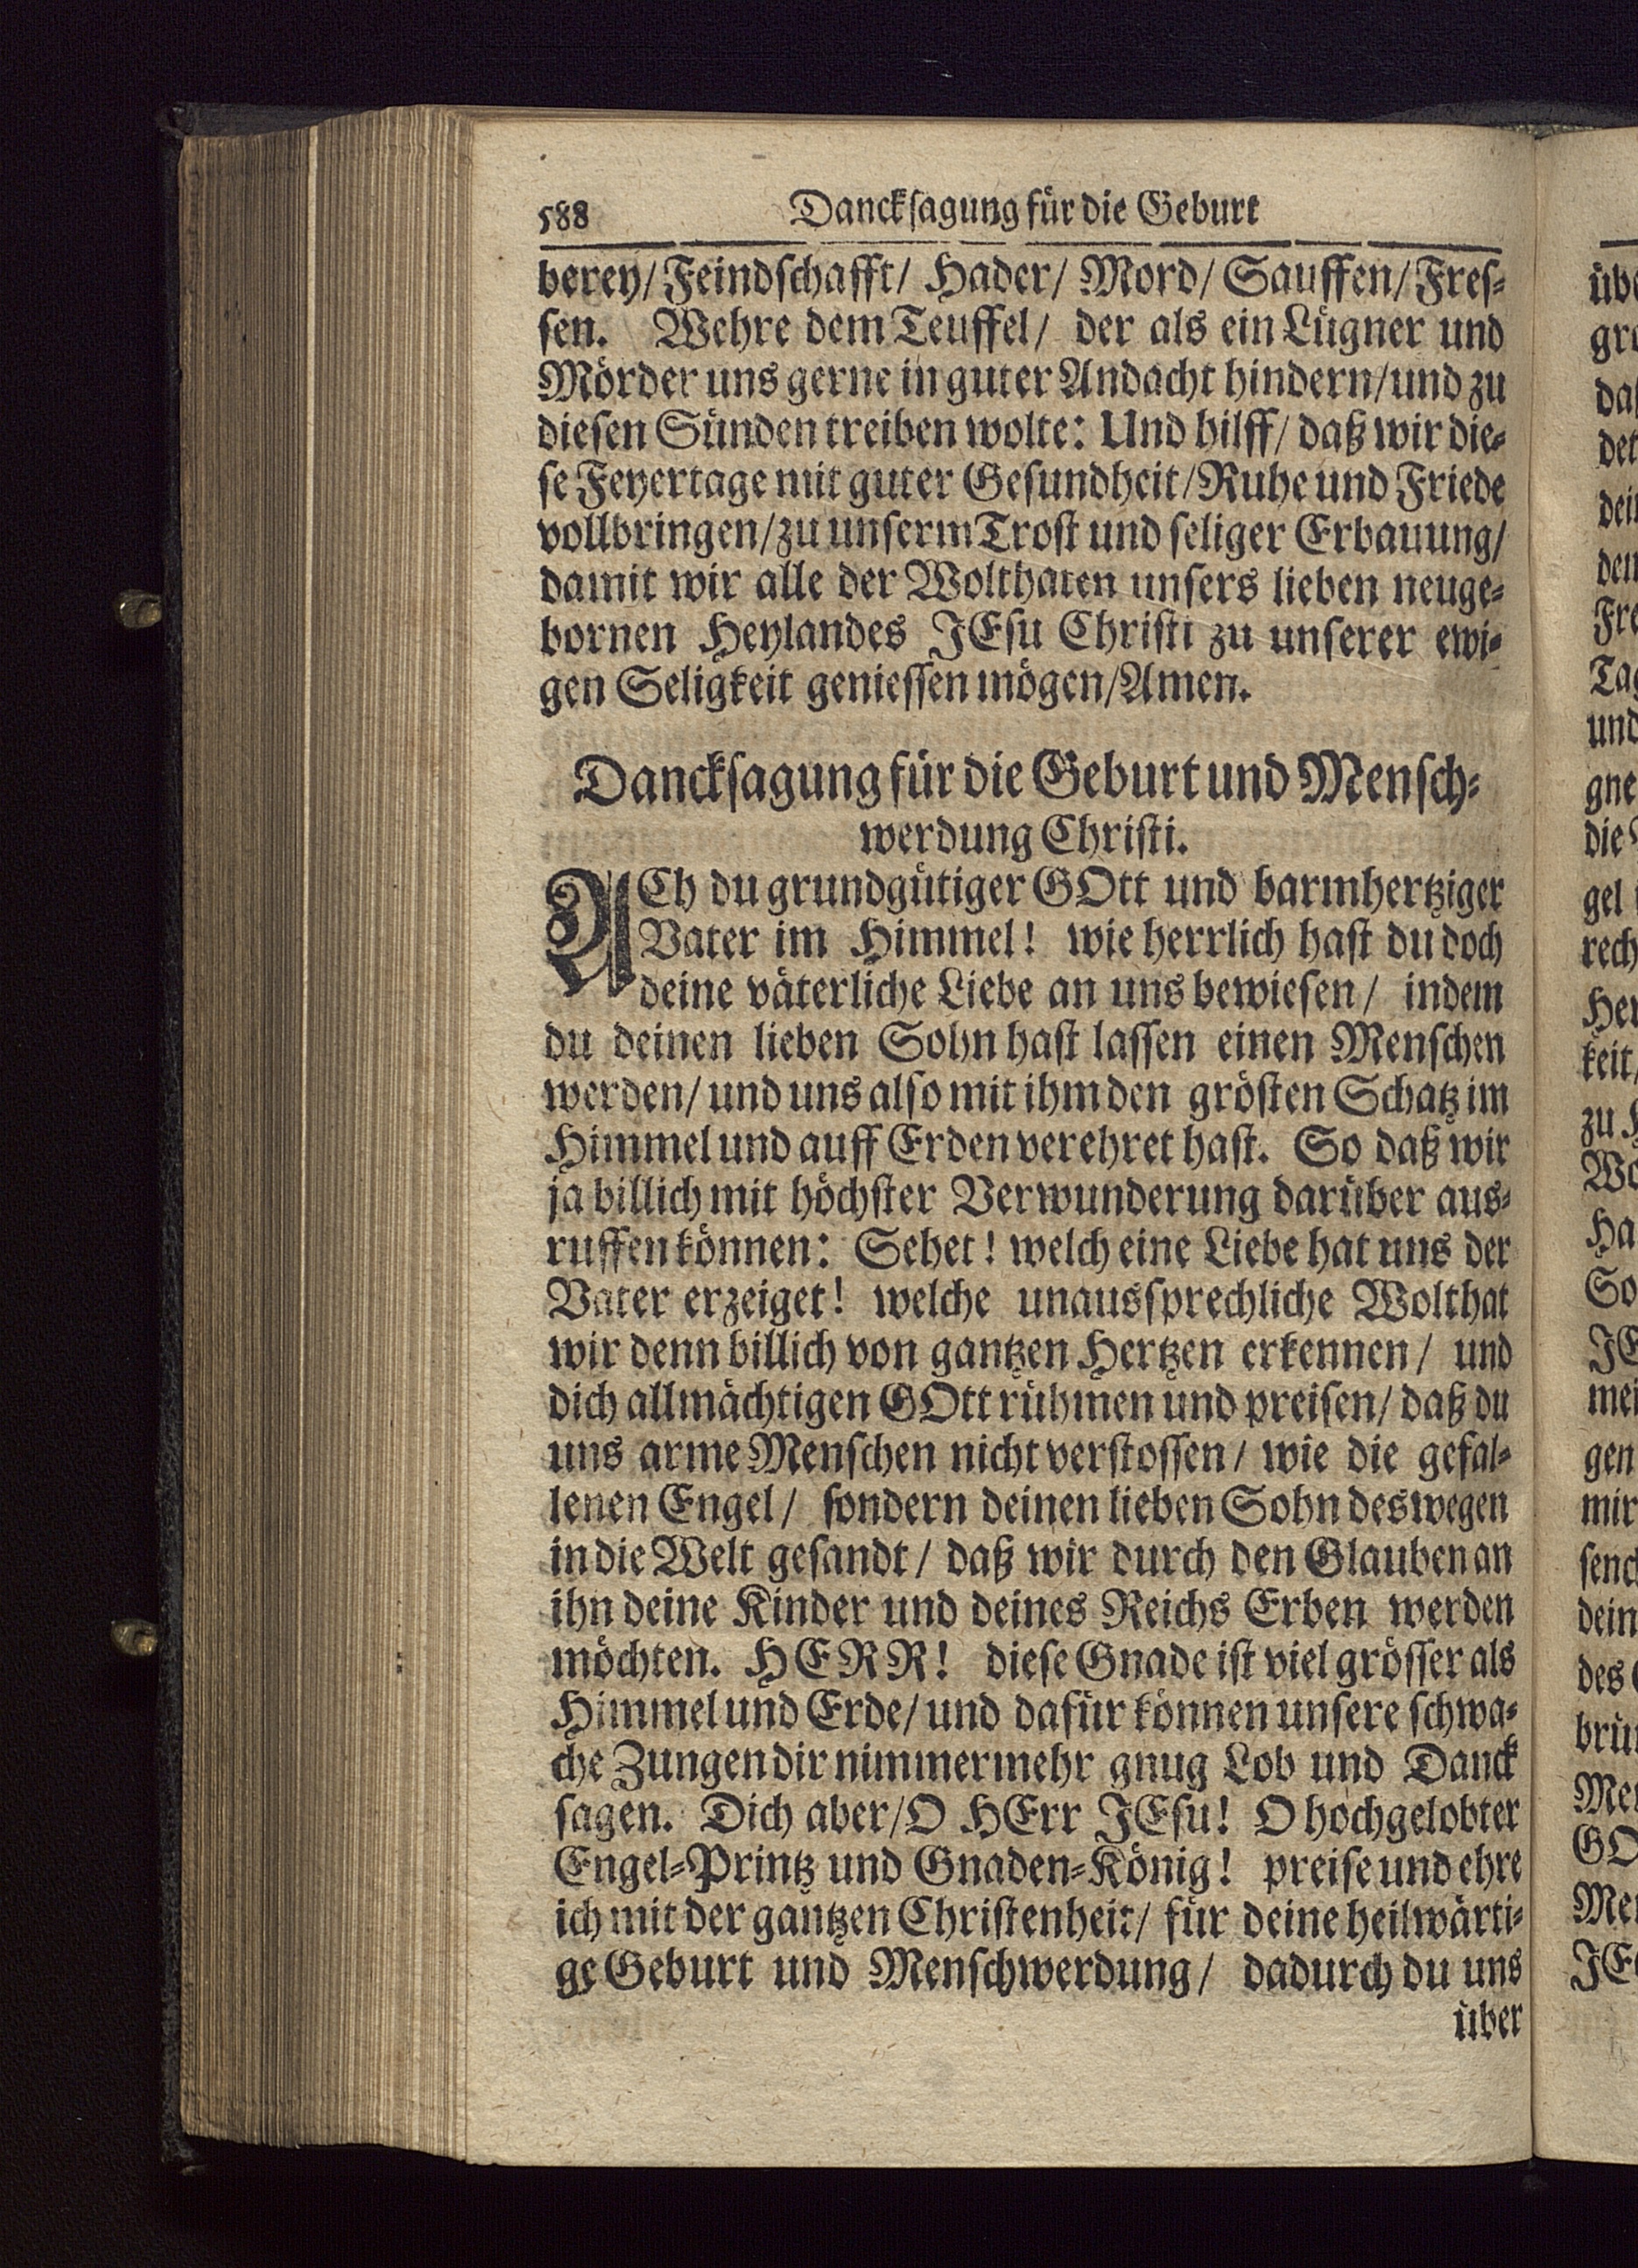 588 Danckſagung für die Geburt
berey/ Feindſchafft/ Hader/ Mord/ Sauffen/ Freſ⸗
ſen. Wehre dem Teuffel/ der als ein Lügner und
Mörder uns gerne in guter Andacht hindern/ und zu
dieſen Sünden treiben wolte: Und hilff/ daß wir die⸗
ſe Feyertage mit guter Geſundheit/ Ruhe und Friede
vollbringen/ zu unſerm Troſt und ſeliger Erbauung/
damit wir alle der Wolthaten unſers lieben neuge⸗
bornen Heylandes JEſu Chriſti zu unſerer ewi⸗
gen Seligkeit genieſſen mögen/ Amen.
Danckſagung für die Geburt und Menſch⸗
werdung Chriſti.
ACh du grundgütiger GOtt und barmhertziger
Vater im Himmel! wie herrlich haſt du doch
deine väterliche Liebe an uns bewieſen/ indem
du deinen lieben Sohn haſt laſſen einen Menſchen
werden/ und uns alſo mit ihm den gröſten Schatz im
Himmel und auff Erden verehret haſt. So daß wir
ja billich mit höchſter Verwunderung darüber aus⸗
ruffen können: Sehet! welch eine Liebe hat uns der
Vater erzeiget! welche unausſprechliche Wolthat
wir denn billich von gantzen Hertzen erkennen/ und
dich allmächtigen GOtt rühmen und preiſen/ daß du
uns arme Menſchen nicht verſtoſſen/ wie die gefal⸗
lenen Engel/ ſondern deinen lieben Sohn deswegen
in die Welt geſandt/ daß wir durch den Glauben an
ihn deine Kinder und deines Reichs Erben werden
möchten. HERR! dieſe Gnade iſt viel gröſſer als
Himmel und Erde/ und dafür können unſere ſchwa⸗
che Zungen dir nimmermehr gnug Lob und Danck
ſagen. Dich aber/ O HErr JEſu! O hochgelobter
Engel⸗Printz und Gnaden⸗König! preiſe und ehre
ich mit der gantzen Chriſtenheit/ für deine heilwärti⸗
ge Geburt und Menſchwerdung/ dadurch du uns
über